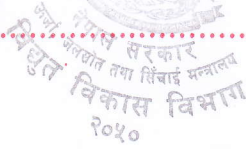 नेपाल सरकार
ऊर्जा जलस्रोत तथा सिँचाई मन्त्रालय
विद्युत विकास विभाग
२०५०